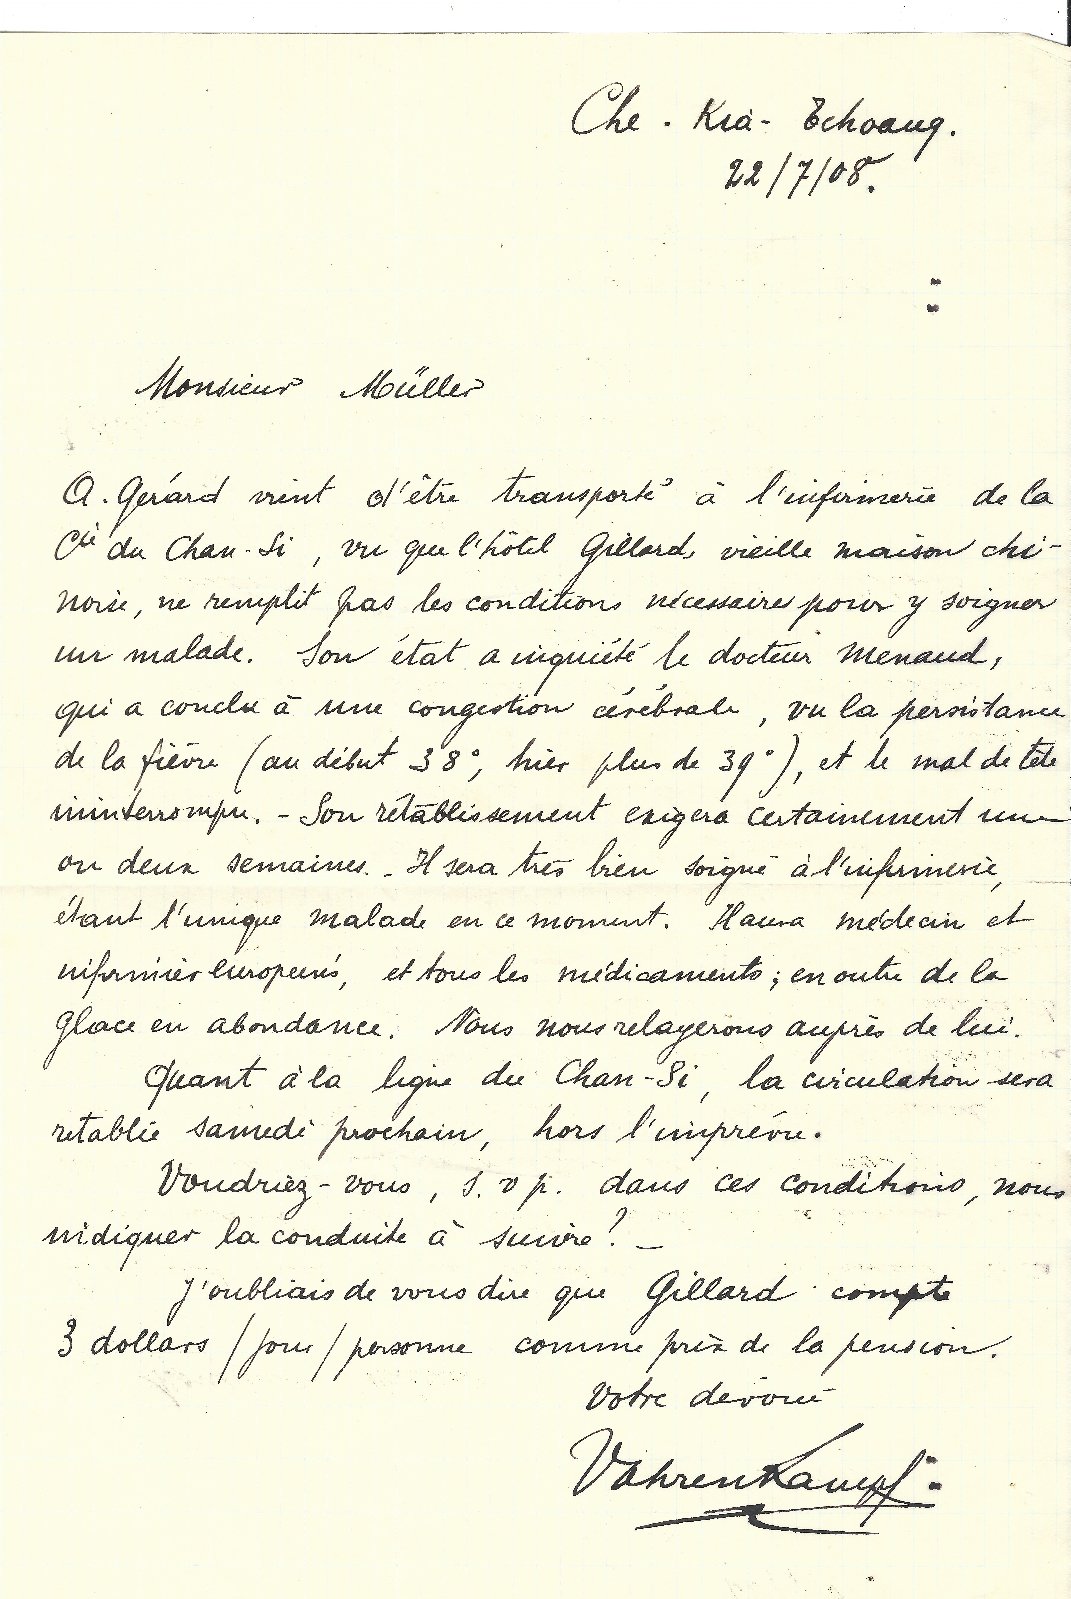 Che - Kia - Tchoang.
22/7/08.
Monsieur Müller
A. Gérard vient d'être transporté à l'infirmerie de la
Cie du Chan-Si, vu que l'hôtel Gillard, vieille maison chi-
noise, ne remplit pas les conditions nécessaires pour y soigner
un malade. Son état a inquiété le docteur Menaud,
qui a conclu à une congestion cérébrale, vu la persistance
de la fièvre (au début 38°, hier plus de 39°), et le mal de tête
ininterrompu. - Son rétablissement exigera certainement une
ou deux semaines. - Il sera très bien soigné à l'infirmerie,
étant l'unique malade en ce moment. Il aura médecin et
infirmier européens, et tous les médicaments; en outre de la
glace en abondance. Nous nous relayerons auprès de lui.
Quant à la ligne du Chan-Si, la circulation sera
rétablie samedi prochain, hors l'imprévu.
Voudriez-vous, s. v p. dans ces conditions, nous
indiquer la conduite à suivre? -
J'oubliais de vous dire que Gillard compte
3 dollars / jour / personne comme prix de la pension.
Votre dévoué
Vahrenkampf.